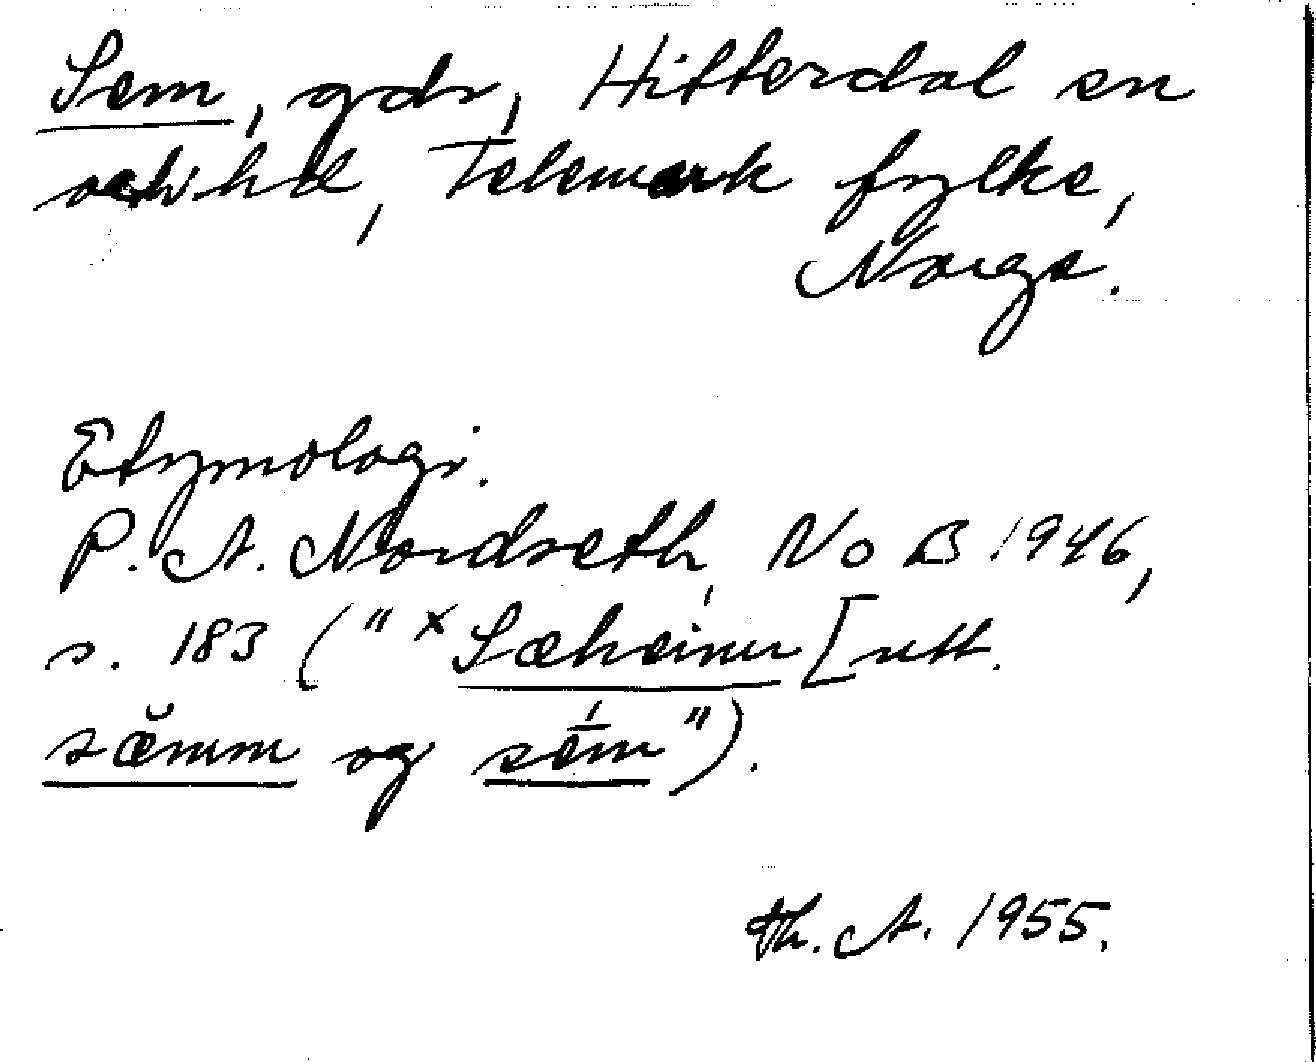 Sem, gdr, Hitterdal sn
och hd, Telemark fylke,
Norge.
Etymologi.
P. A. Nordseth, NoB 1946,
s. 183 ("×Sæheimr [utt.
sæ̆mm og sém").
Th. A. 1955.